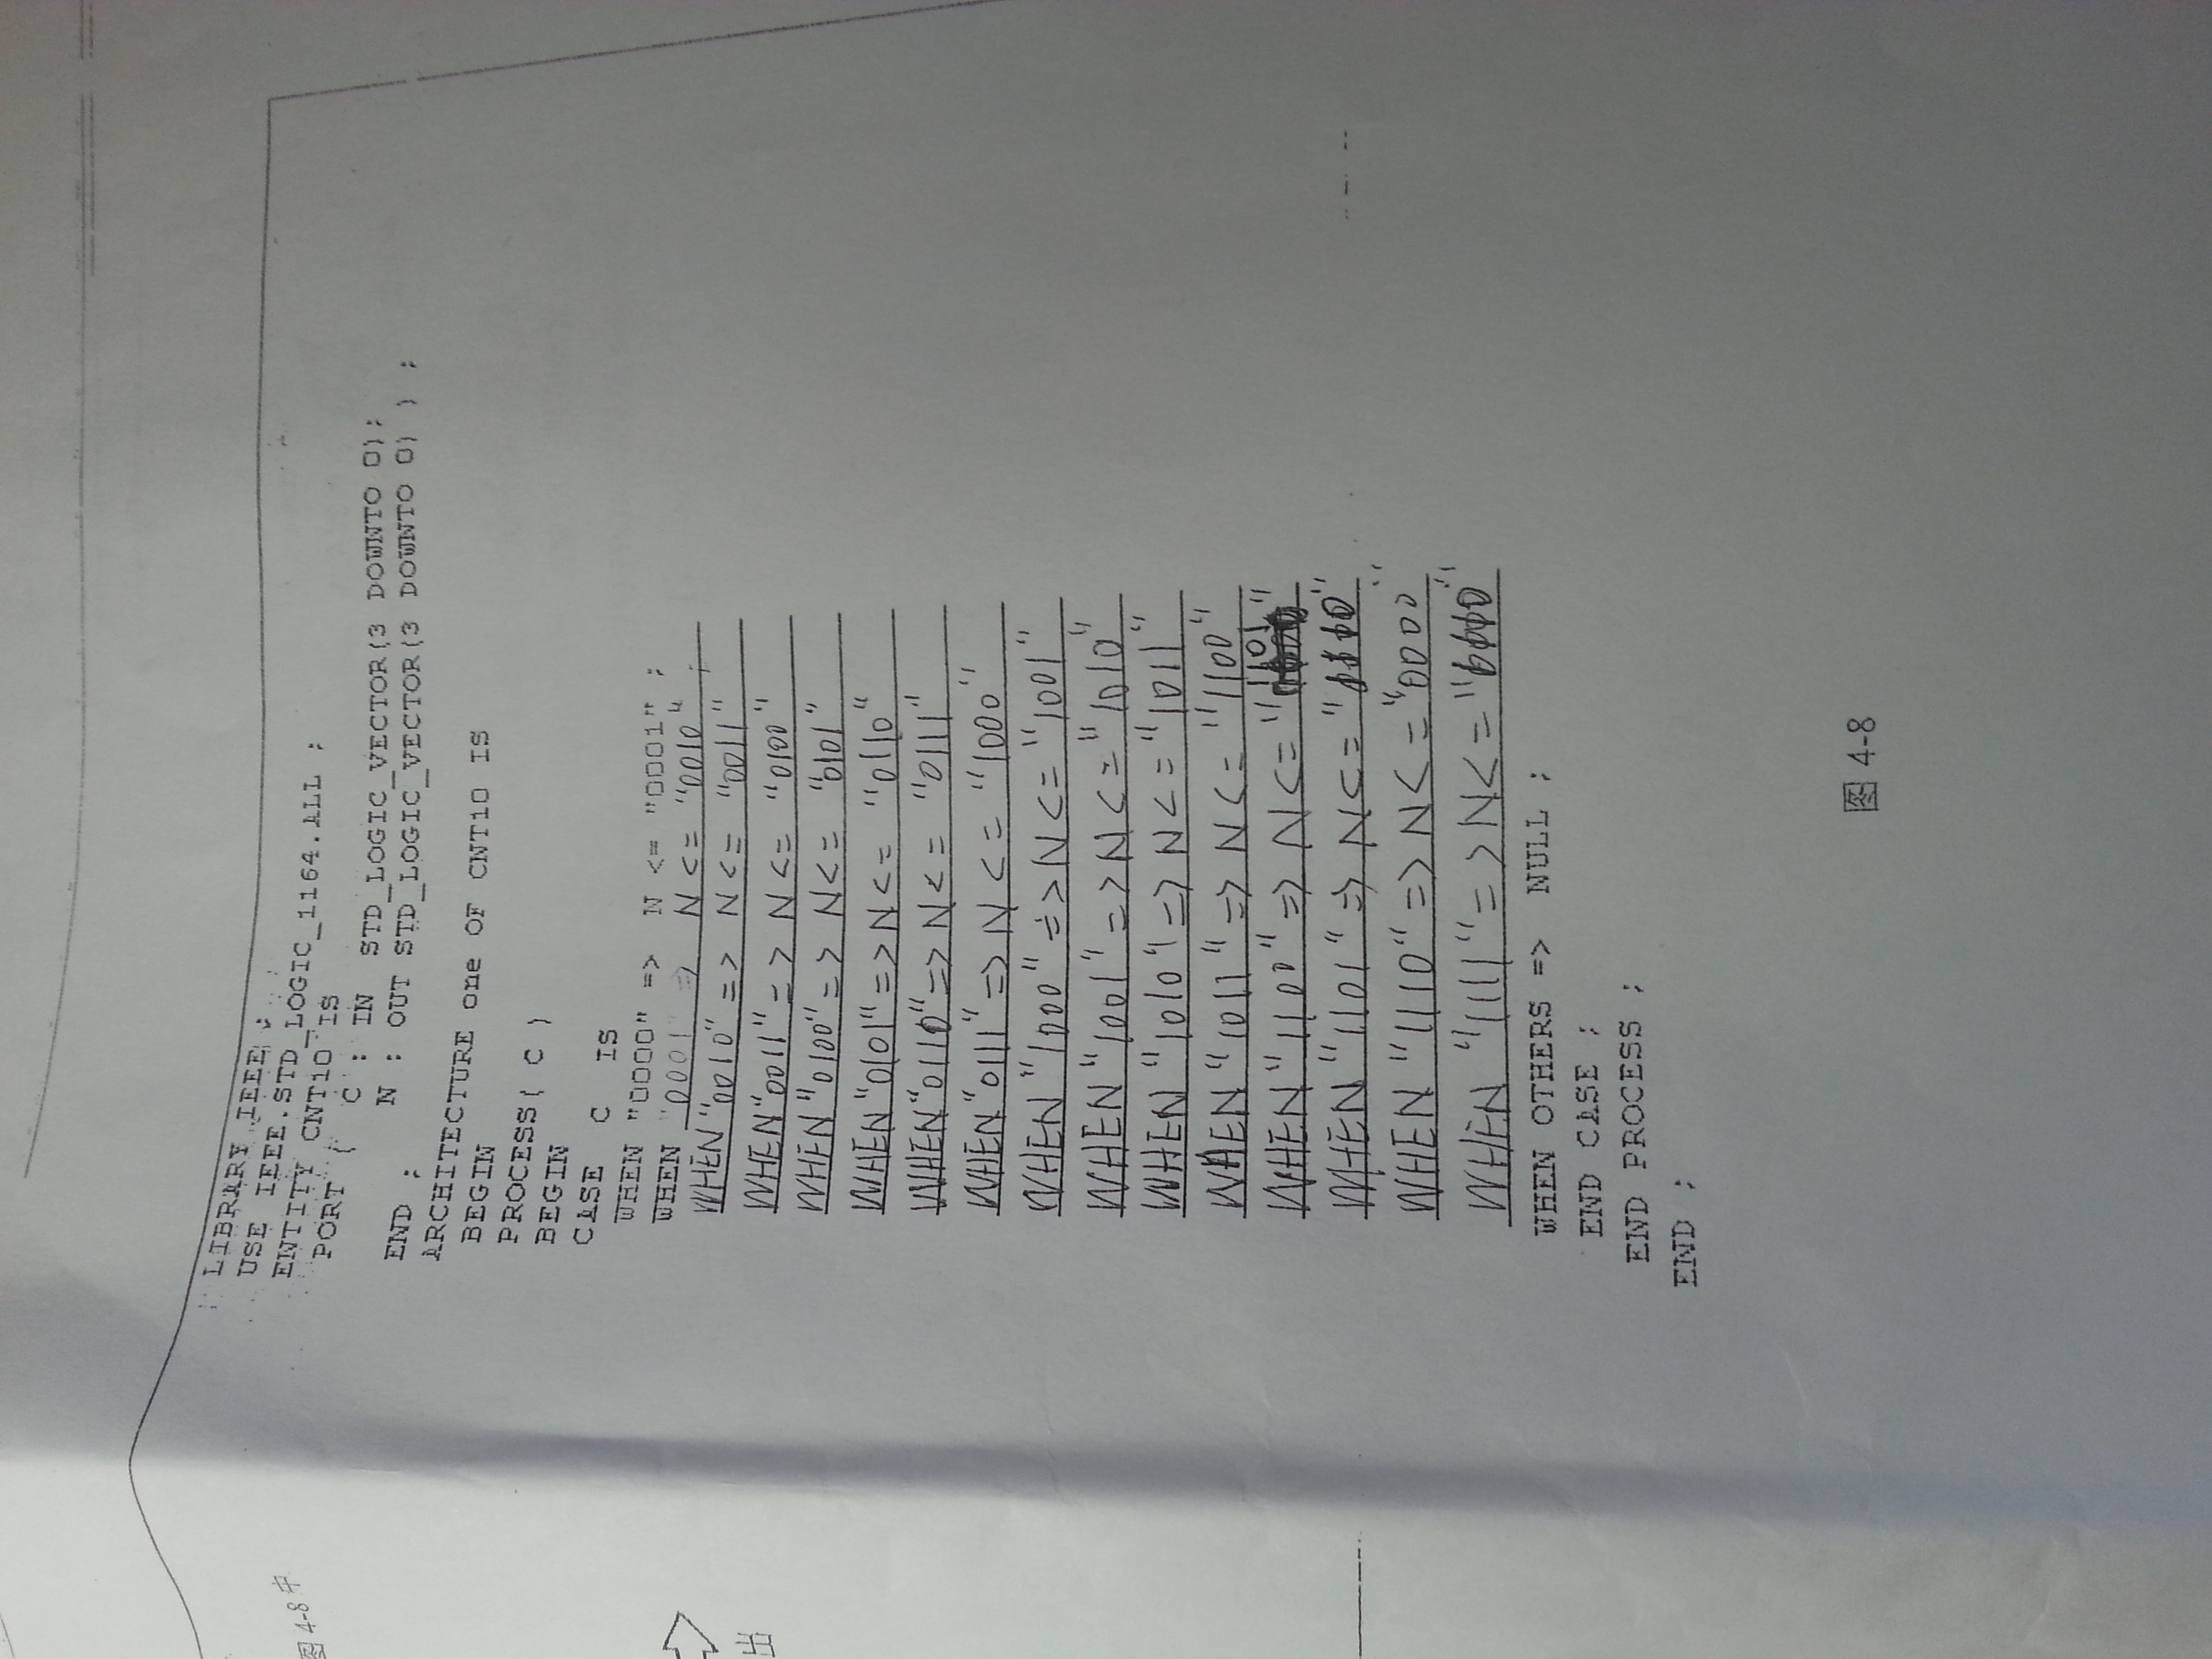 LIBRARY IEEE ;
USE IEEE.STD_LOGIC_1164.ALL ;
ENTITY CNT10 IS
PORT ( C : IN STD_LOGIC_VECTOR(3 DOWNTO 0);
N : OUT STD_LOGIC_VECTOR(3 DOWNTO 0) ) ;
END ;
ARCHITECTURE one OF CNT10 IS
BEGIN
PROCESS( C )
BEGIN
CASE C IS
WHEN "0000" => N <= "0001" ;
WHEN "0001" => N <= "0010" ;
WHEN "0010" => N <= "0011"
WHEN "0011" => N <= "0100"
WHEN "0100" => N <= "0101"
WHEN "0101" => N <= "0110"
WHEN "0110" => N <= "0111"
WHEN "0111" => N <= "1000"
WHEN "1000" => N <= "1001"
WHEN "1001" => N <= "1010"
WHEN "1010" => N <= "1011"
WHEN "1011" => N <= "1100"
WHEN "1100" => N <= "1101"
WHEN "1101" => N <=
WHEN "1110" => N <= "0000"
WHEN "1111" => N <=
WHEN OTHERS => NULL ;
END CASE ;
END PROCESS ;
END ;
图 4-8
图 4-8 中
出